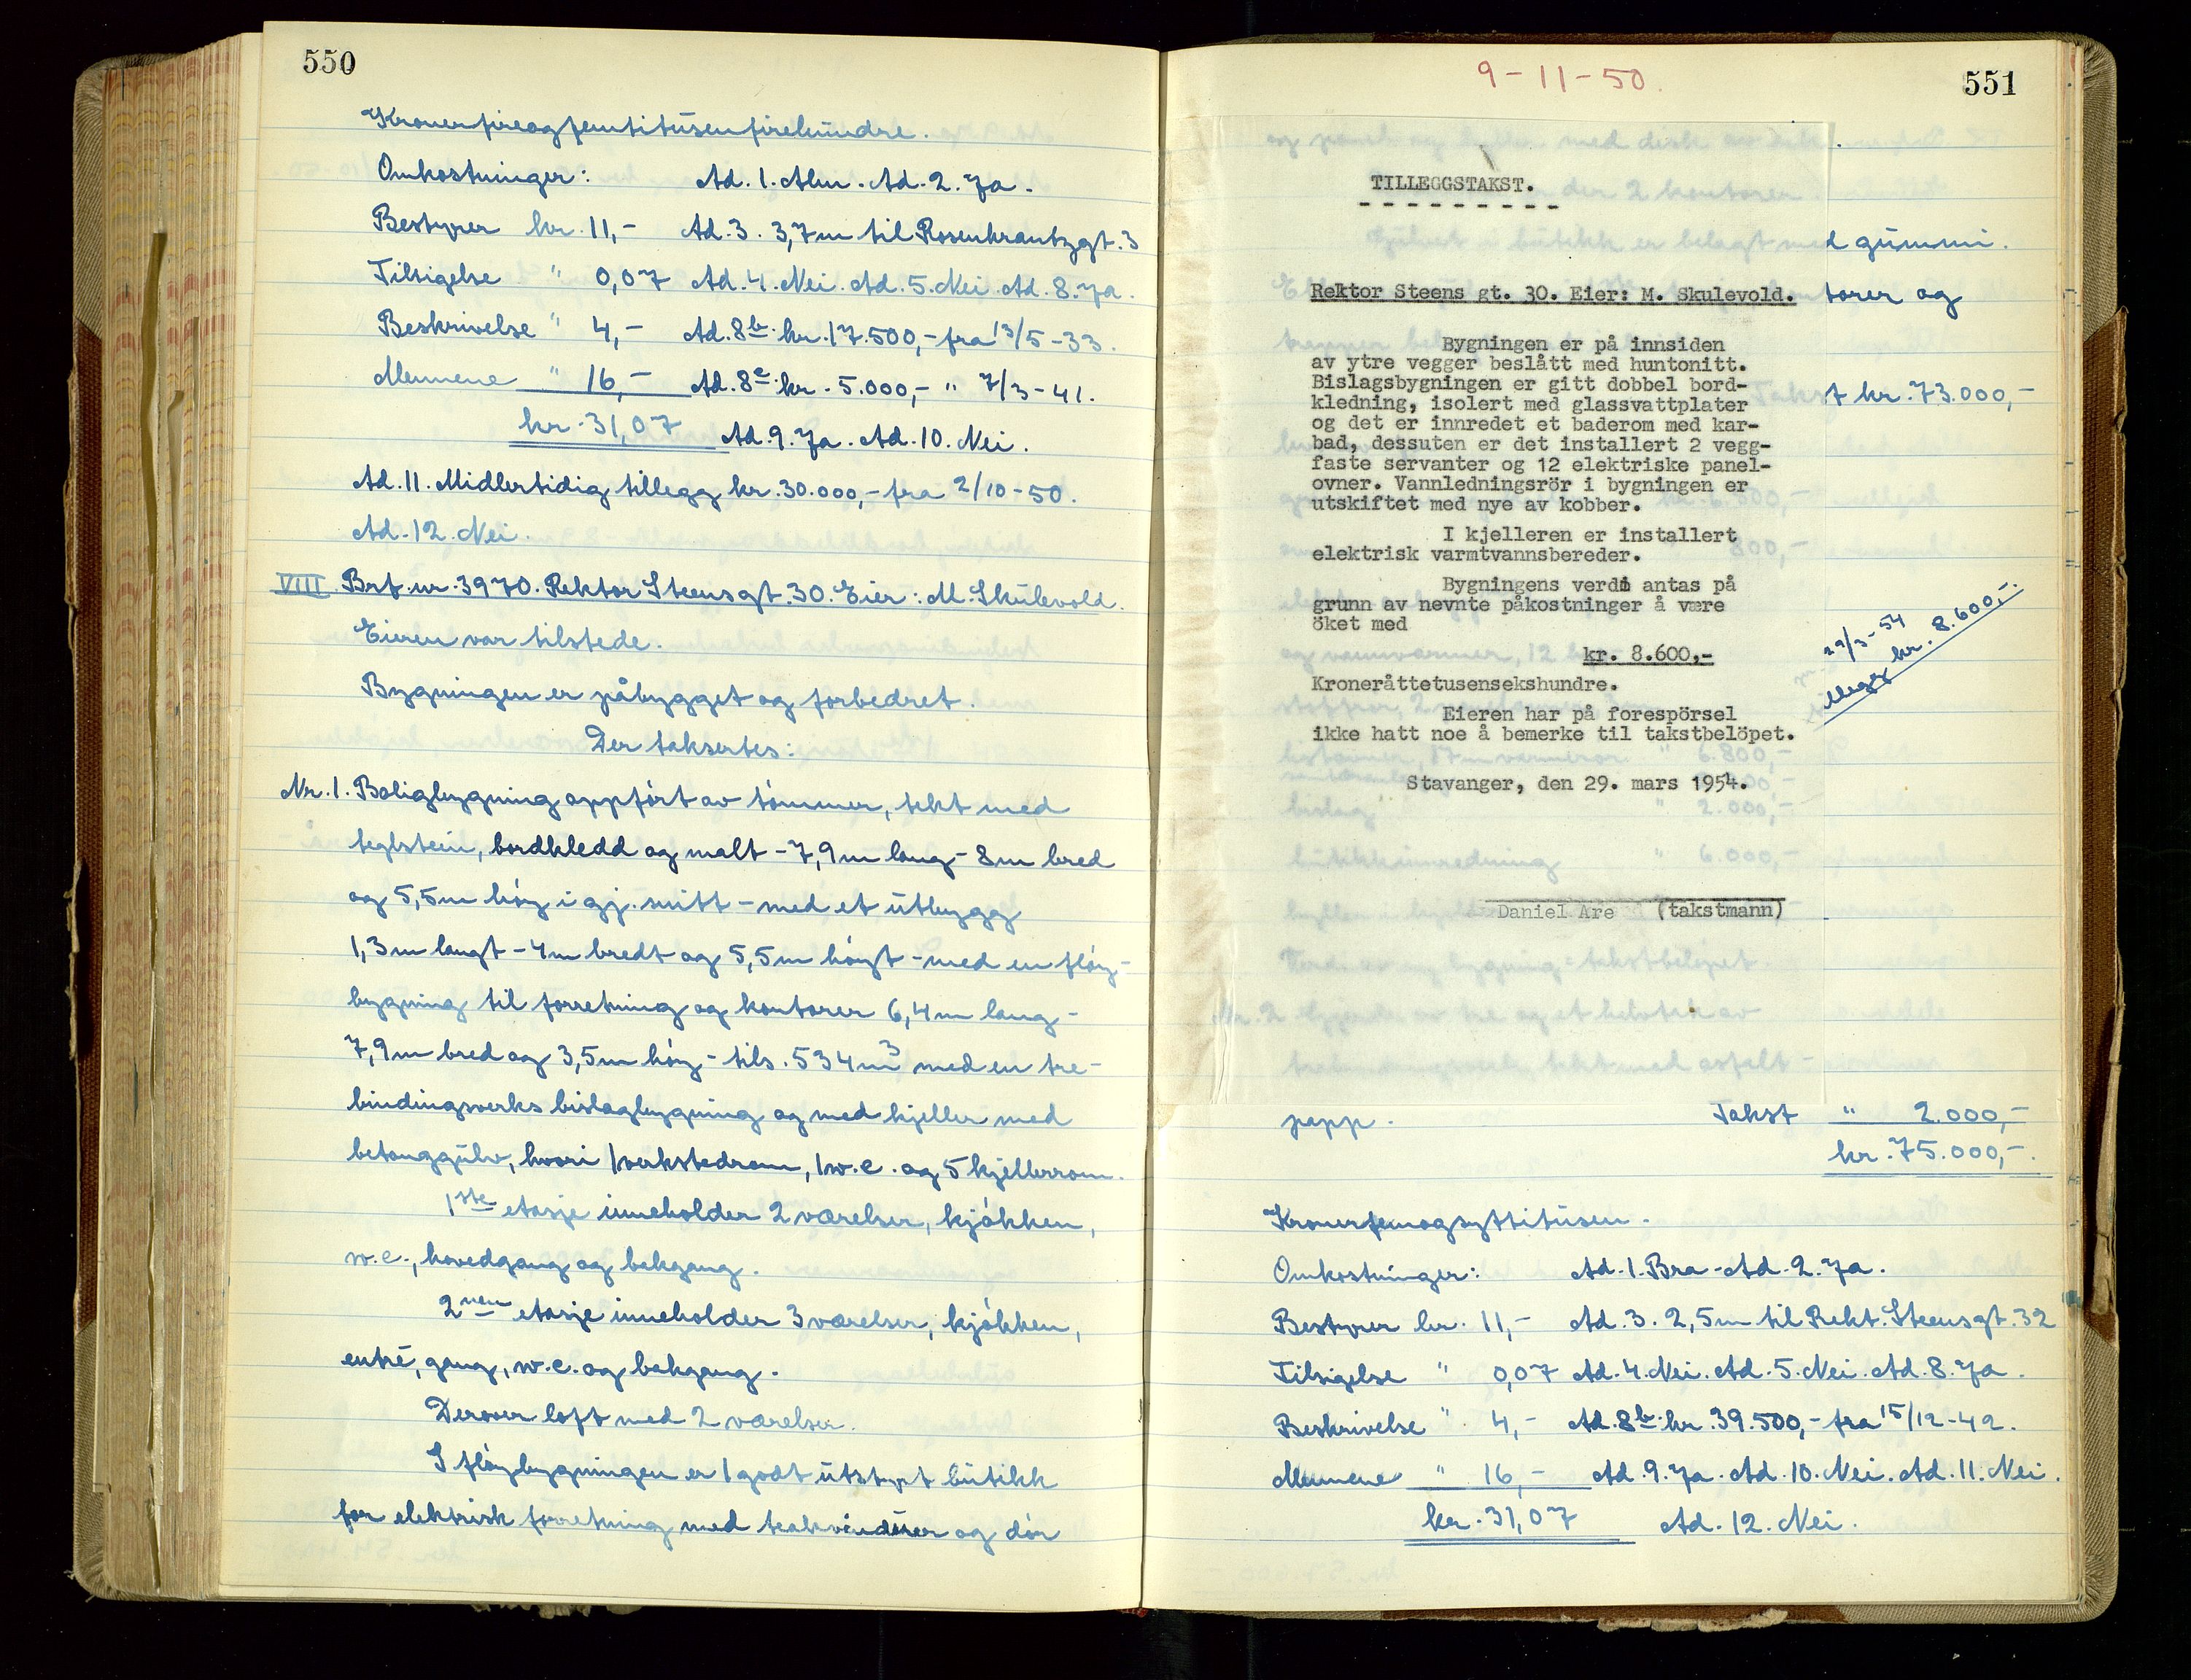 550
Kronerfireogfemtitusenfirehundre.
Omkostninger: Ad. 1. Alm. Ad. 2. Ja.
Bestyrer kr. 11,- Ad. 3. 3,7m til Rosenkrantzgt. 3
Tilsigelse " 0,07 Ad. 4. Nei. Ad. 5. Nei. Ad. 8. Ja.
Beskrivelse " 4,- Ad. 8b. kr. 17.500,- fra 13/5-33.
Mennene " 16,- Ad. 8c. kr. 5.000,- " 7/3-41.
kr. 31,07 Ad. 9. Ja. Ad. 10. Nei.
Ad. 11. Midlertidig tillegg kr. 30.000,- fra 2/10-50.
Ad. 12. Nei.
VIII. Brf. nr. 3970. Rektor Steensgt. 30. Eier: M. Skulevold.
Eieren var tilstede.
Bygningen er påbygget og forbedret.
Der takseres:
Nr. 1. Boligbygning oppført av tømmer, tekt med
teglstein, bordkledd og malt - 7,9m lang - 8m bred
og 5,5m høy i gj. snitt - med et utbygg
1,3m langt - 4m bredt og 5,5m høyt - med en fløy-
bygning til forretning og kontorer 6,4m lang -
7,9m bred og 3,5m høy - tils. 534m3 med en tre-
bindingsverks bislagbygning og med kjeller med
betonggulv, hvori 1 verkstedrom, 1 w.c. og 5 kjellerrom.
1ste etasje inneholder 2 værelser, kjøkken,
w.c., hovedgang og bakgang.
2nen etasje inneholder 3 værelser, kjøkken,
entré, gang, w.c. og bakgang.
Derover loft med 2 værelser.
I fløybygningen er 1 godt utstyrt butikk
for elektrisk forretning med teakvinduer og dør
9-11-50.
551
TILLEGGSTAKST.
---------
d gummi.
Rektor Steens gt. 30. Eier: M. Skulevold.
torer og
Bygningen er på innsiden
av ytre vegger beslått med huntonitt.
Bislagsbygningen er gitt dobbel bord-
t kr. 73.000,-
kledning, isolert med glassvattplater
og det er innredet et baderom med kar-
bad, dessuten er det installert 2 vegg-
faste servanter og 12 elektriske panel-
ovner. Vannledningsrör i bygningen er
utskiftet med nye av kobber.
I kjelleren er installert
elektrisk varmtvannsbereder.
Bygningens verdi antas på
grunn av nevnte påkostninger å være
öket med
kr. 8.600,-
29/3-54
illegg kr. 8.600,-
Kroneråttetusensekshundre.
Eieren har på forespörsel
ikke hatt noe å bemerke til takstbelöpet.
Stavanger, den 29. mars 1954.
Daniel Are (takstmann)
papp. Takst " 2.000,-
kr. 75.000,-.
Kronerfemogsyttitusen.
Omkostninger: Ad. 1. Bra. Ad. 2. Ja.
Bestyrer kr. 11,- Ad. 3. 2,5m til Rekt. Steensgt. 32
Tilsigelse " 0,07 Ad. 4. Nei. Ad. 5. Nei. Ad. 8. Ja.
Beskrivelse " 4,- Ad. 8b. kr. 39.500,- fra 15/12-42.
Mennene " 16,- Ad. 9. Ja. Ad. 10. Nei. Ad. 11. Nei.
kr. 31,07 Ad. 12. Nei.